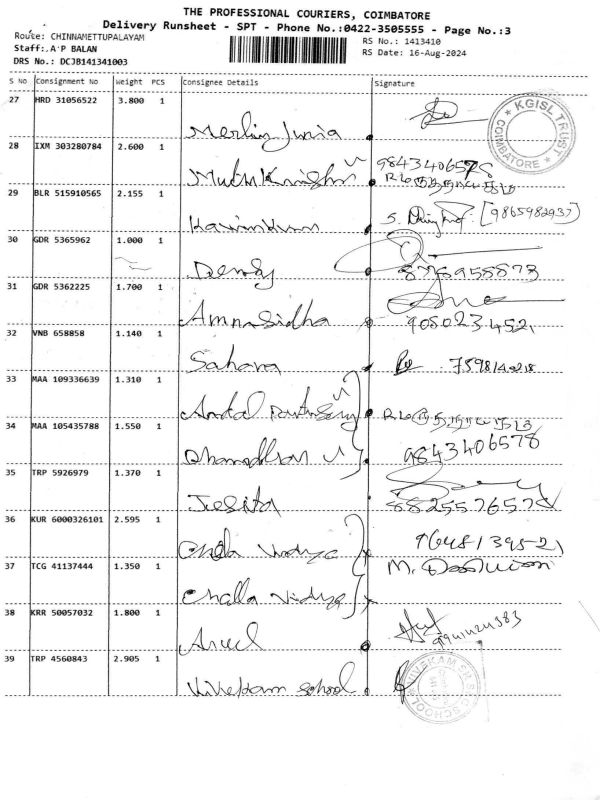 THE PROFESSIONAL COURIERS, COIMBATORE
Delivery Runsheet - SPT - Phone No.:0422-3505555 - Page No.:3
Route: CHINNAMETTUPALAYAM
RS No.: 1413410
Staff: A P BALAN
RS Date: 16-Aug-2024
DRS No.: DCJB141341003
S No Consignment No Weight PCS Consignee Details Signature
27 HRD 31056522 3.800 1
Merlin Junia
KGISL TRUST COIMBATORE
28 IXM 303280784 2.600 1
9843406578
Muthu Krishn
29 BLR 515910565 2.155 1
S. [9865982937]
30 GDR 5365962 1.000 1
Dendy 8778955873
31 GDR 5362225 1.700 1
Amnasidha 9050234521
32 VNB 658858 1.140 1
Sahana
33 MAA 109336639 1.310 1
34 MAA 105435788 1.550 1
9843406578
35 TRP 5926979 1.370 1
Jesita 8825576578
36 KUR 6000326101 2.595 1
Challa Vidya
37 TCG 41137444 1.350 1
M.
Challa Vidya
38 KRR 50057032 1.800 1
Arul
39 TRP 4560843 2.905 1
Vivekam school